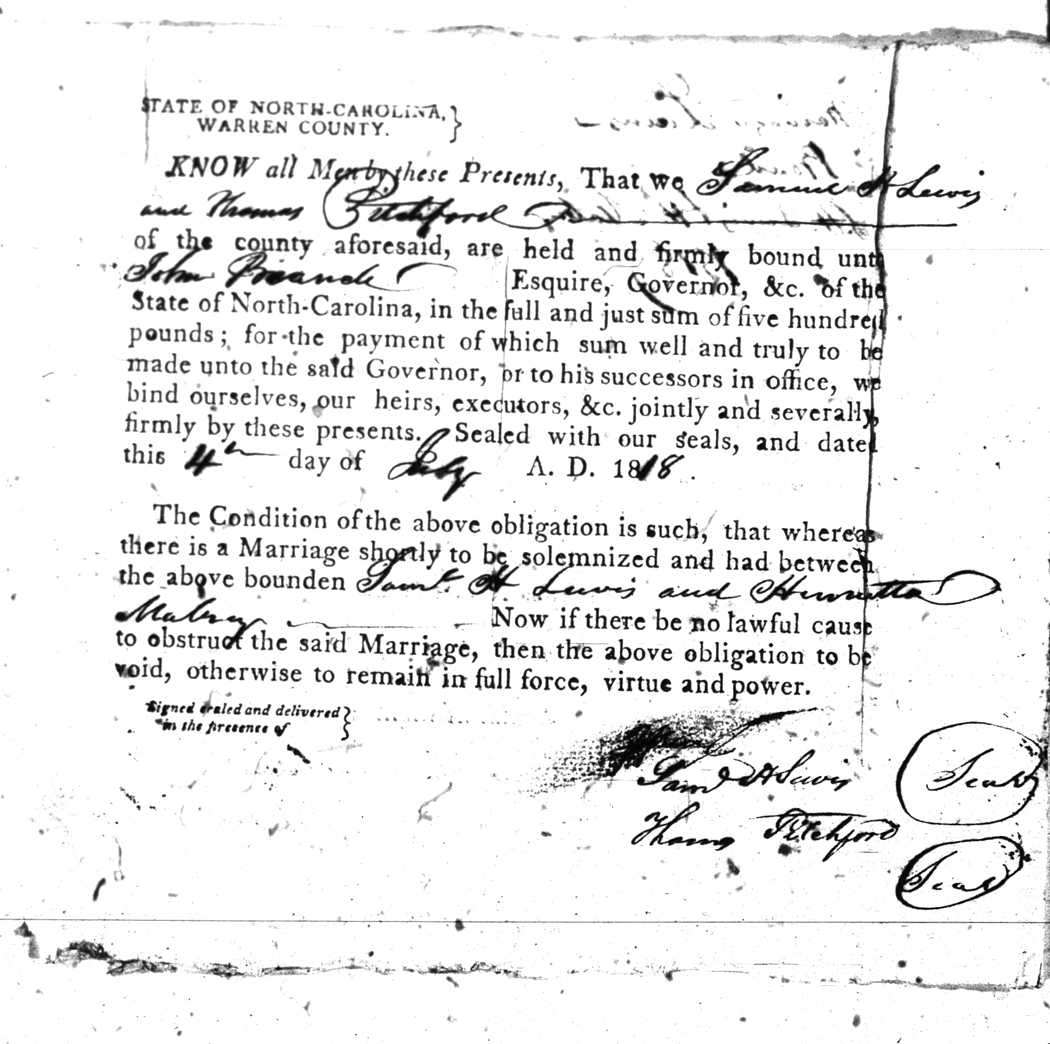 STATE OF NORTH-CAROLINA, }
WARREN COUNTY.
KNOW all Men by these Presents, That we Samuel H Lewis
and Thomas Pitchford
of the county aforesaid, are held and firmly bound unto
John Branch Esquire, Governor, &c. of the
State of North-Carolina, in the full and just sum of five hundred
pounds; for the payment of which sum well and truly to be
made unto the said Governor, or to his successors in office, we
bind ourselves, our heirs, executors, &c. jointly and severally,
firmly by these presents. Sealed with our seals, and dated
this 4th day of July A. D. 1818.
The Condition of the above obligation is such, that whereas
there is a Marriage shortly to be solemnized and had between
the above bounden Saml. H Lewis and Henrietta
Mabry Now if there be no lawful cause
to obstruct the said Marriage, then the above obligation to be
void, otherwise to remain in full force, virtue and power.
Signed sealed and delivered }
in the presence of
Saml H Lewis Seal
Thomas Pitchford
Seal